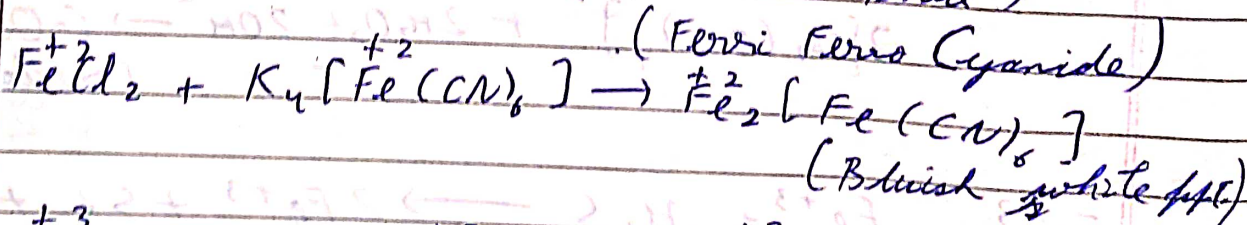 (Ferri Ferro Cyanide)
Fe⁺²Cl₂ + K₄[Fe⁺²(CN)₆] → Fe⁺²₂[Fe(CN)₆]
(Bluish white ppt)
+3